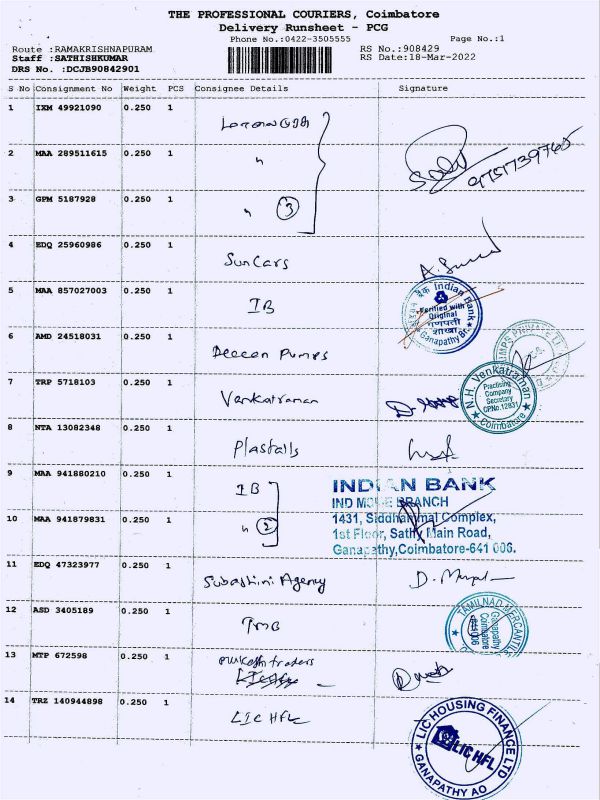 THE PROFESSIONAL COURIERS, Coimbatore
Delivery Runsheet - PCG
Phone No.:0422-3505555 Page No.:1
Route :RAMAKRISHNAPURAM RS No.:908429
Staff :SATHISHKUMAR RS Date:18-Mar-2022
DRS No. :DCJB90842901
S No Consignment No Weight PCS Consignee Details Signature
1 IXM 49921090 0.250 1
2 MAA 289511615 0.250 1 "
9751739765
3 GPM 5187928 0.250 1 " 3
4 EDQ 25960986 0.250 1 Sun Cars
5 MAA 857027003 0.250 1 IB
Indian Bank
Verified with
Original
गणपती
शाखा
Ganapathy Br.
6 AMD 24518031 0.250 1 Deccan Pumps
PUMPS PRIVATE
7 TRP 5718103 0.250 1 Venkatraman
N.H. Venkatraman
Practising
Company
Secretary
CPNo.12831
Coimbatore
8 NTA 13082348 0.250 1 Plastalls
9 MAA 941880210 0.250 1 IB
INDIAN BANK
IND BRANCH
10 MAA 941879831 0.250 1 " 2
1431, Siddhammal Complex,
1st Floor, Sathy Main Road,
Ganapathy,Coimbatore-641 006.
11 EDQ 47323977 0.250 1 Subashini Agency
12 ASD 3405189 0.250 1 TMB
TAMILNAD MERCANTILE
Ganapathy
Coimbatore
13 MTP 672598 0.250 1 Mukesh traders
14 TRZ 140944898 0.250 1 LIC HFL
LIC HOUSING FINANCE LTD
LIC HFL
GANAPATHY AO